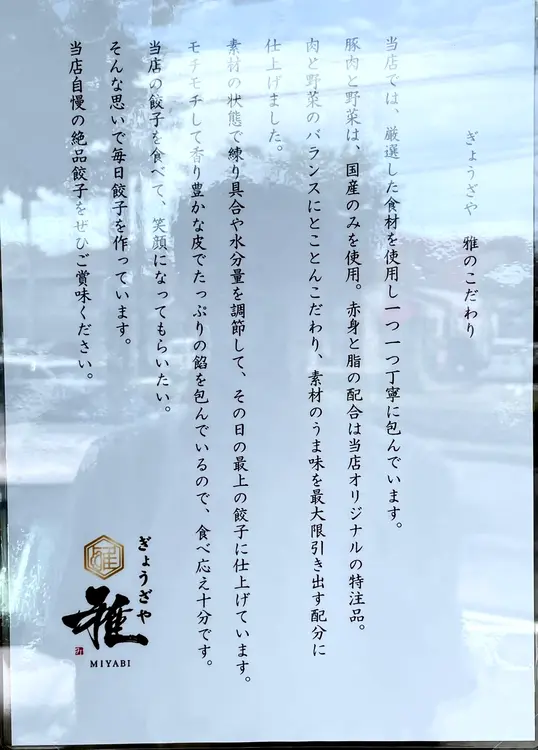 ぎょうざや 雅のこだわり
当店では、厳選した食材を使用し一つ一つ丁寧に包んでいます。
豚肉と野菜は、国産のみを使用。赤身と脂の配合は当店オリジナルの特注品。
肉と野菜のバランスにとことんこだわり、素材のうま味を最大限引き出す配分に
仕上げました。
素材の状態で練り具合や水分量を調節して、その日の最上の餃子に仕上げています。
モチモチして香り豊かな皮でたっぷりの餡を包んでいるので、食べ応え十分です。
当店の餃子を食べて、笑顔になってもらいたい。
そんな思いで毎日餃子を作っています。
当店自慢の絶品餃子をぜひご賞味ください。
ぎょうざや
雅
MIYABI